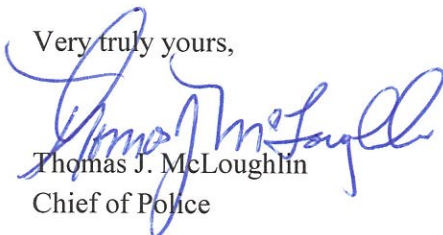 Very truly yours,
Thomas J McLoughlin
Thomas J. McLoughlin
Chief of Police